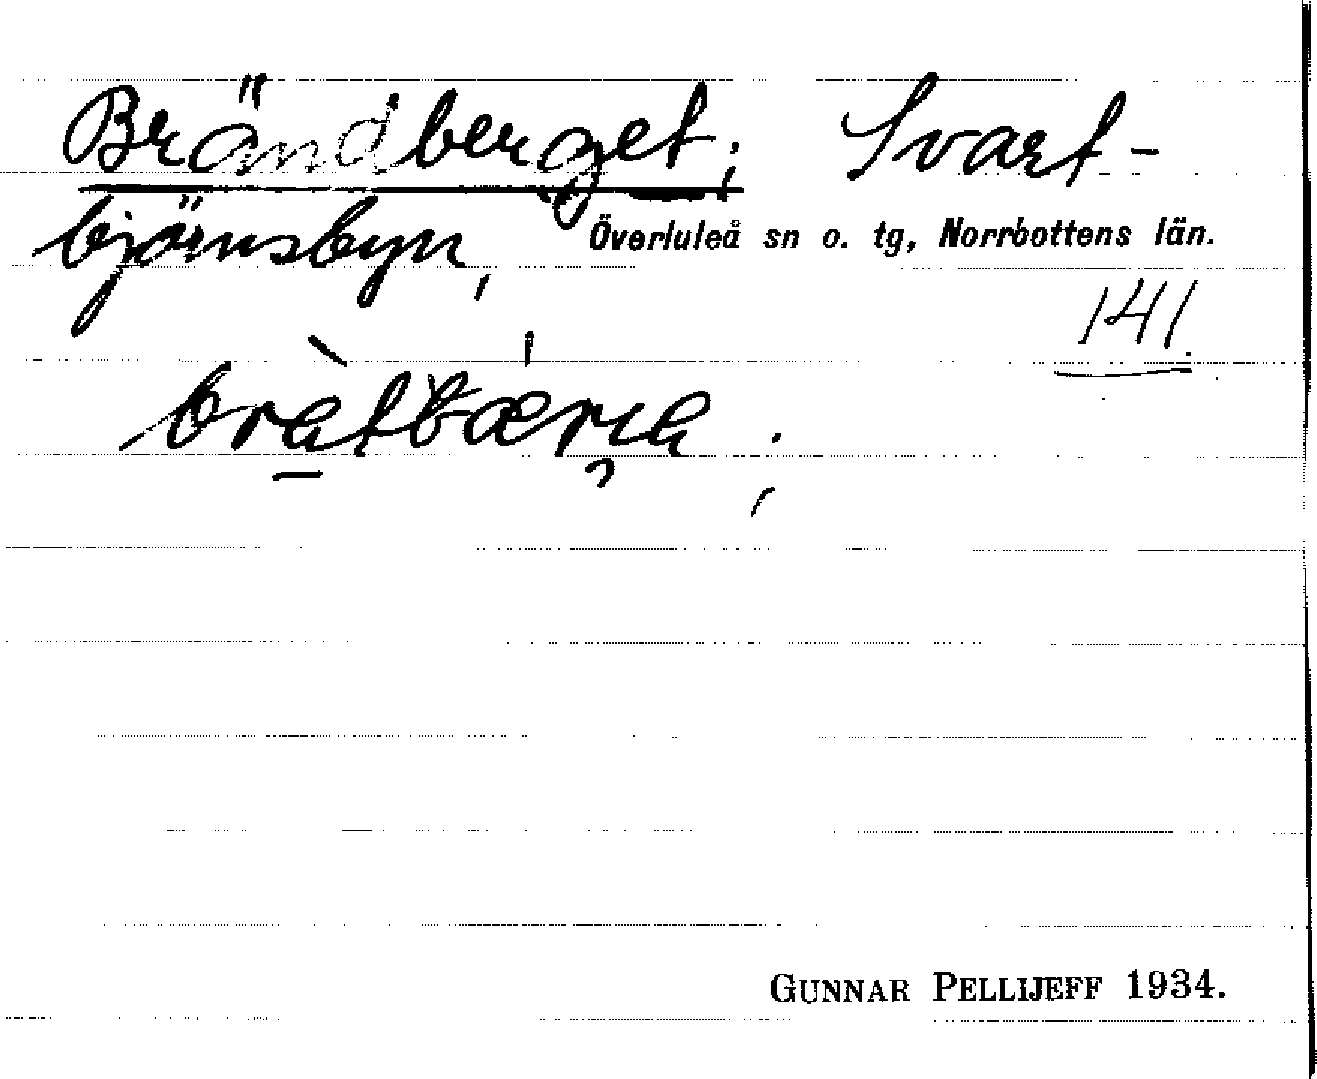 Brändberget; Svart-
björnsbyn, Överluleå sn o. tg, Norrbottens län.
141.
GUNNAR PELLIJEFF 1934.